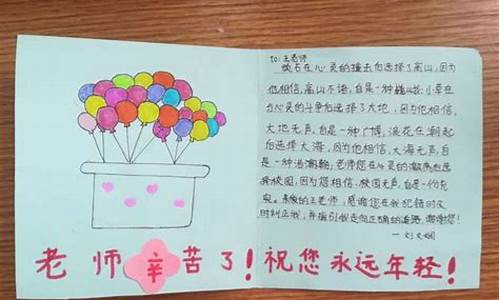 to:王老师
顽石在心灵的撞击后选择了高山,因为
他相信,高山不语,自是一种巍峨;小草在
为心灵的斗争后选择了大地,因为他相信,
大地无声,自是一种广博;浪花在潮起
后选择大海,因为他相信,大海无声,自
是一种浩瀚;老师您在心灵的激荡后选
择校园,因为您相信,校园无声,自是一份充
实。亲爱的王老师,感谢您在我犯错时及
时纠正我,并指引我走向正确的道路,谢谢您!
老师辛苦了!祝您永远年轻!